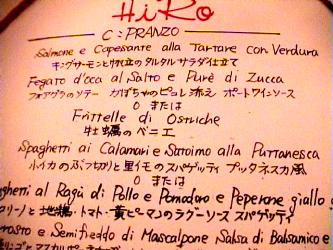 HiRo
C:PRANZO
Salmone e Capesante alla Tartare con Verdura
キングサーモンと帆立のタルタル サラダ仕立て
Fegato d'oca al Salto e Purè di Zucca
フォアグラのソテー かぼちゃのピュレ添え ポートワインソース
0 または
Frittelle di Ostriche
牡蠣のベニエ
Spaghetti ai Calamari e Satoimo alla Puttanesca
小イカのぶつ切りと里イモのスパゲッティ プッタネスカ風
0 または
ghetti al Ragù di Pollo e Pomodoro e Peperone giallo
トマト・黄ピーマンのラグーソース スパゲッティ
rosto e Semifreddo di Mascalpone Salsa di Balsamico e